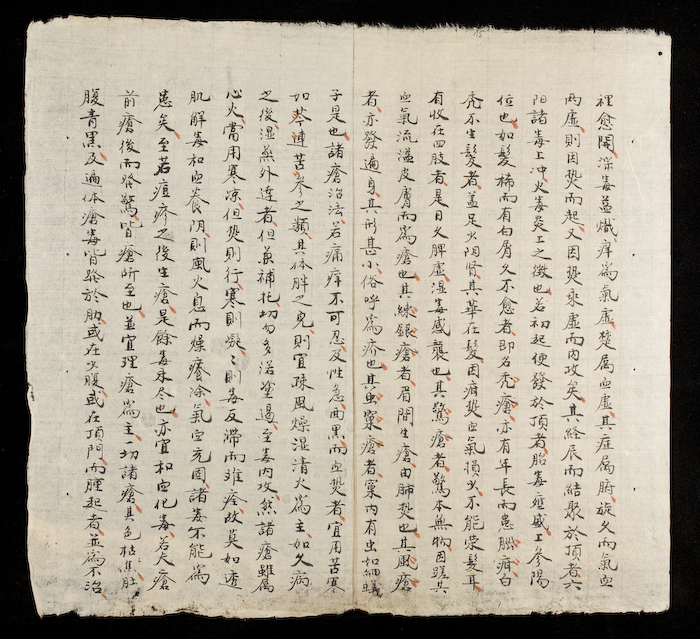 裡愈開深毒益熾痒為氣虛焚属血虛其症属腑旋久而氣血
両虛則因㷫而起又因㷫乘虛而內攻矣其経辰而結聚於頂者六
阳諸毒上冲火毒炎上之徴也若初起便發於頂者胎毒壅盛上參陽
位也如髮稀而有白屑久不愈者即名禿瘡亦有年長而患𦡳癬白
禿不生髮者盖足少阴腎其華在髮因癬㷫血氣損少不能荣髮耳
有收在四肢者是日久脾虛湿毒盛襲也其驚瘡者驚本無物因蹉其
血氣流溢皮膚而為瘡也其練銀瘡者眉間生瘡由肺㷫也其風瘡
者亦發遍身其形甚小俗呼為疥也其虫窠瘡者窠內有虫如細蟻
子是也諸瘡治法若痛痒不可忍及性急面黑而血㷫者宜用苦寒
如芩連苦参之類其体胖之児則宜疎風燥湿清火為主如久病
之後湿㷫外连者但兼補托切勿多浴塗遏至毒內攻然諸瘡雖属
心火當用寒凉但㷫則行寒則凝〻則毒反滞而难痊故莫如透
肌解毒和血養阴則風火息而燥癢除氣血充固諸毒不能為
患矣至若痘疹之後生瘡是餘毒未尽也亦宜和血化毒若夫瘡
前瘡後而發驚皆瘡所至也並宜理瘡為主一切諸瘡其色枯焦肚
腹青黑及遍体瘡毒皆發於肋或在少腹或在頂門而腫起者並為不治